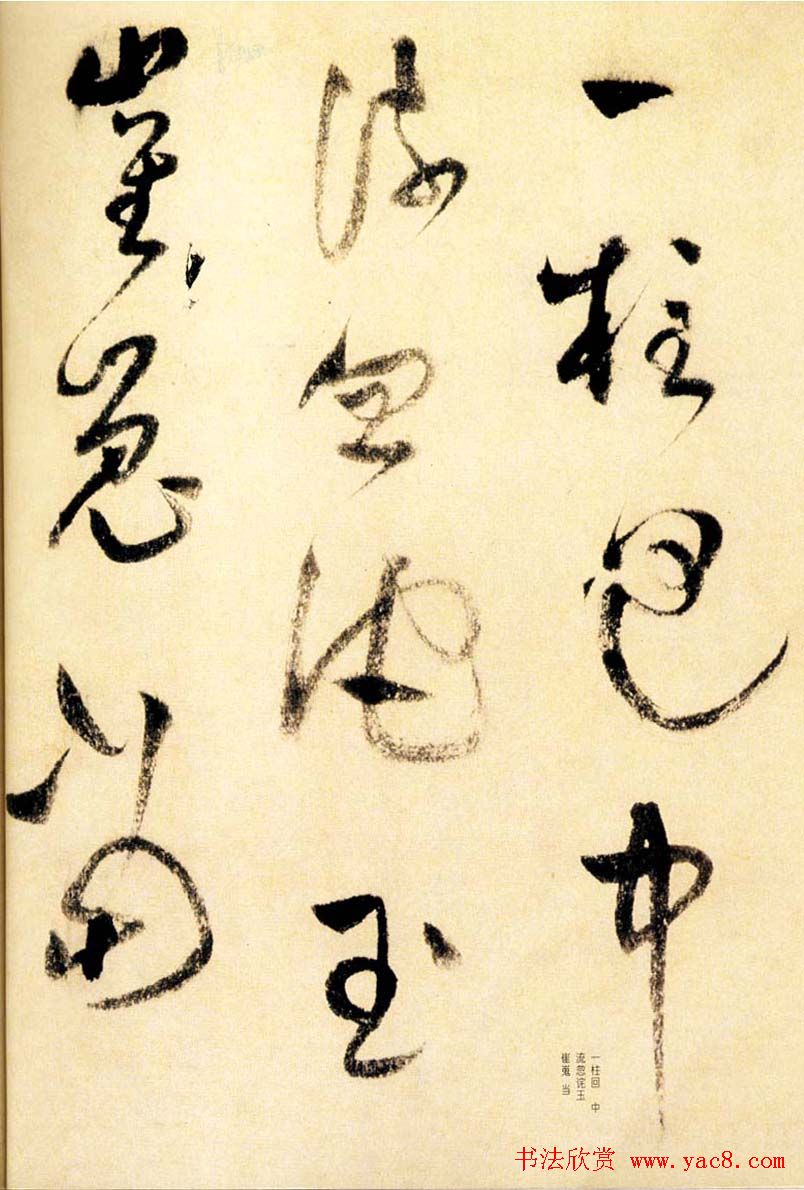 一柱回中
流忽詫玉
崔嵬當
一柱回 中
流忽诧玉
崔嵬 当
书法欣赏 www.yac8.com